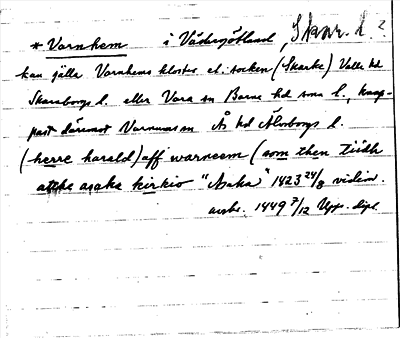 * Varnhem i Västergötland, Skar. l. ?
kan gälla Varnhems kloster el. socken (Skarke) Valle hd
Skaraborgs l. eller Vara sn Barne hd sma l., knap-
past däremot Varnums sn Ås hd Älvsborgs l.
(herre harald) aff warneem (som then tiidh
atthe asaka kirkio "Asaka" 1423 24/8 vidim.
avskr. 1449 7/12 Upps. dipl.